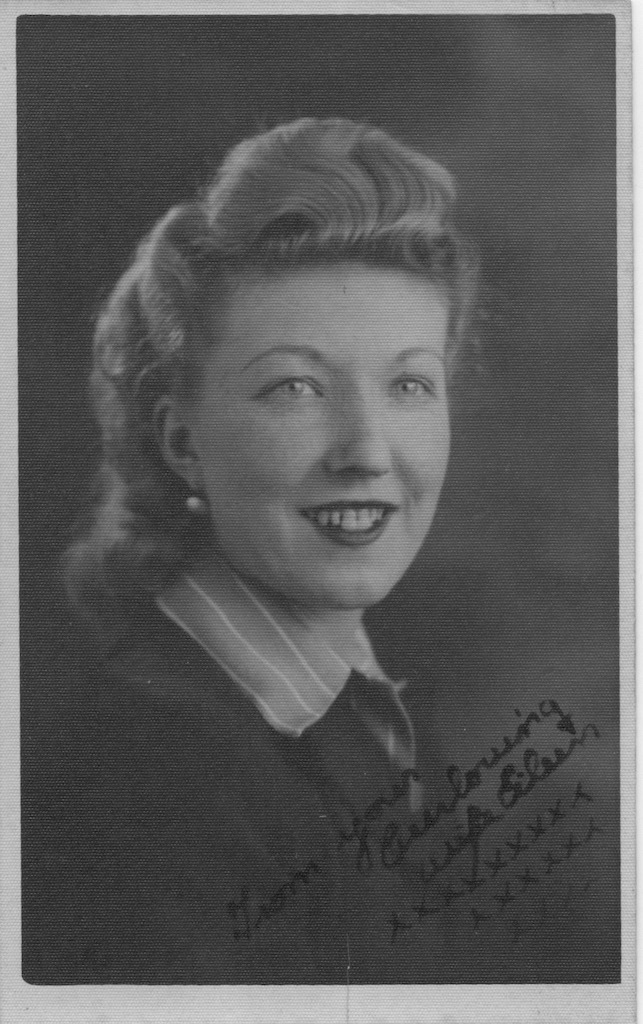 From your
Everloving
wife Eileen
xxxxxxxxx
xxxxxx
xxxx